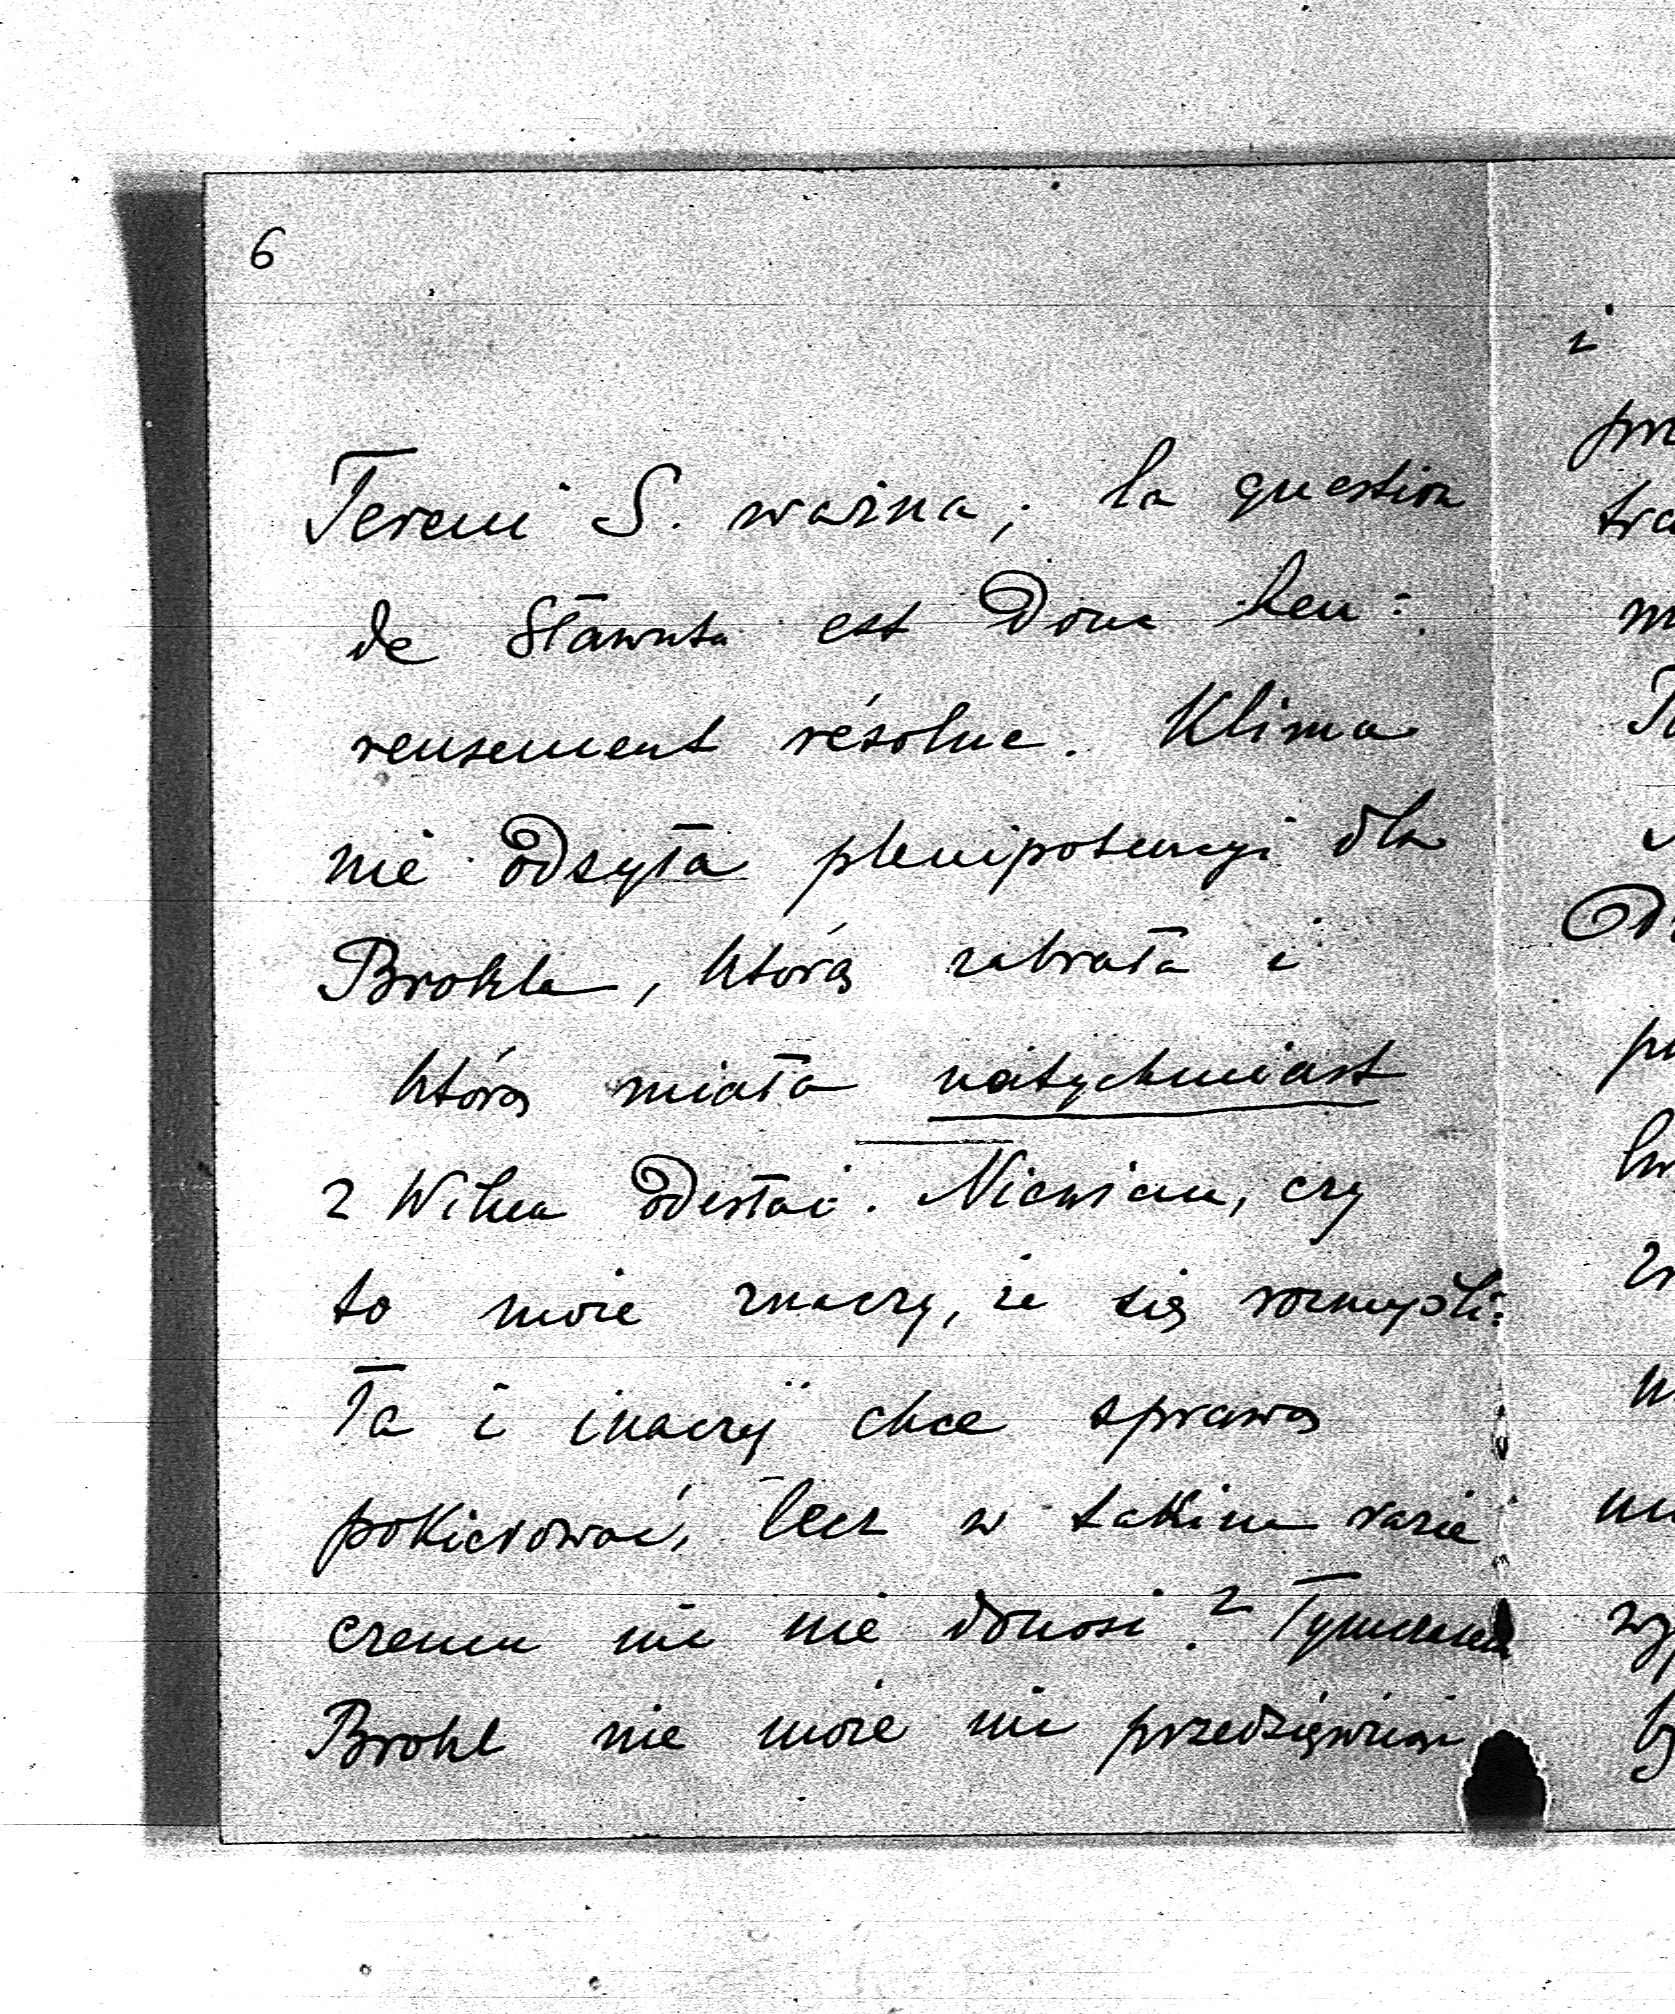 6
Tereni S. ważna; la question
de Sławuta est donc heu:
reusement résolue. Klima
nie odsyła plenipotencyi dla
Brohla, którą zabrała i
którą miała natychmiast
z Wilna odesłać. Niewiem, czy
to może znaczy, że się rozmyśli:
ła i inaczej chce sprawą
pokierować, lecz w takim razie
czemu nic nie donosi? Tymczasem
Brohl nie może nic przedsięwziąć